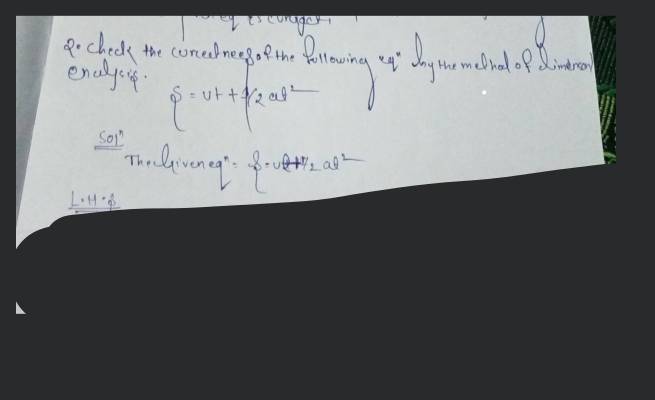 eq is correct,
2. check the correctness of the following eqⁿ by the method of dimension
analysis.
S = ut + 1/2 at²
Solⁿ
The Given eqⁿ = S = ut+1/2 at²
L.H.S